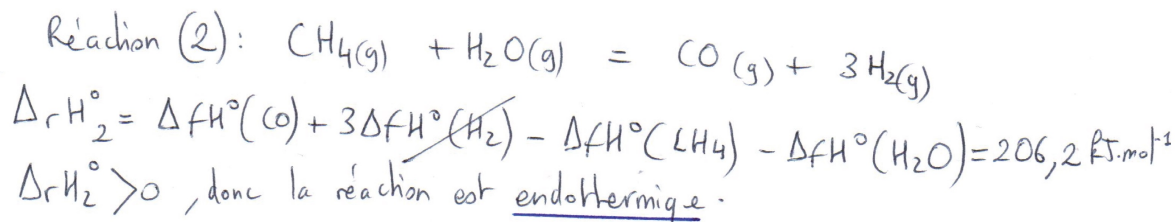 Réaction (2): CH4(g) + H2O(g) = CO(g) + 3H2(g)
ΔrH°2 = ΔfH°(CO) + 3ΔfH°(H2) - ΔfH°(CH4) - ΔfH°(H2O) = 206,2 kJ.mol-1
ΔrH2° >0, donc la réaction est endothermique.